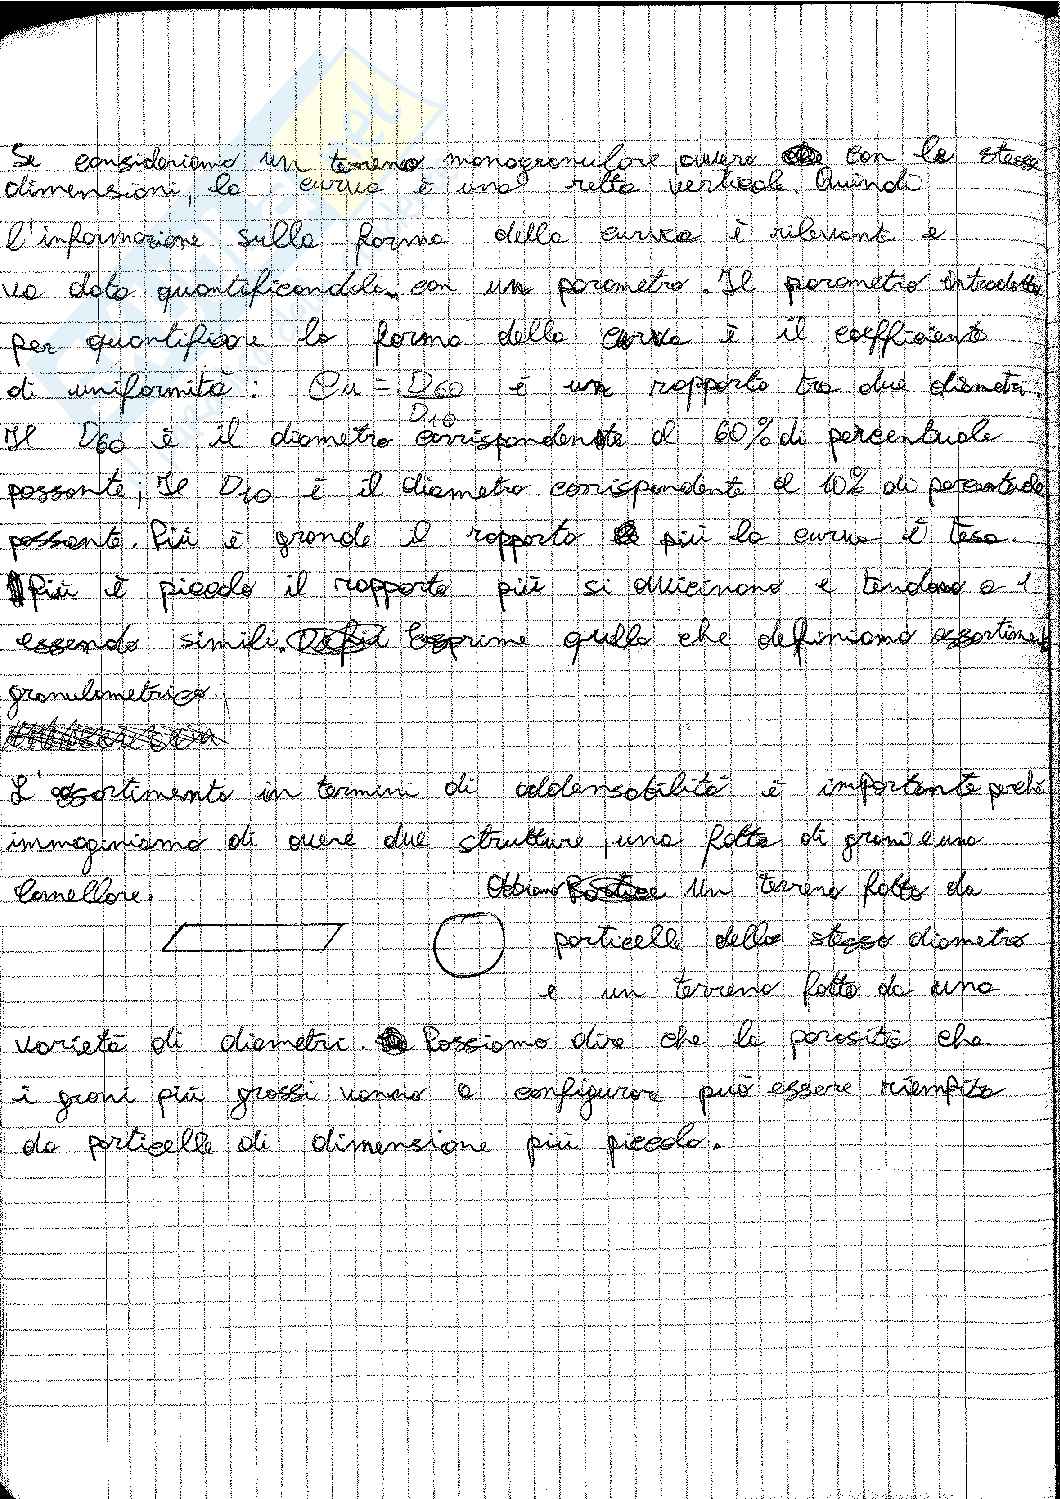 Se consideriamo un terreno monogranulare, ovvero con le stesse
dimensioni, la curva è una retta verticale. Quindi
l'informazione sulla forma della curva è rilevant e
va data quantificandola con un parametro. Il parametro introdotto
per quantificare la forma della curva è il coefficiente
di uniformità: Cu = D60/D10 è un rapporto tra due diametri.
Il D60 è il diametro corrispondente al 60% di percentuale
passante; Il D10 è il diametro corrispondente al 10% di percentuale
passante. Più è grande il rapporto più la curva è tesa.
Più è piccolo il rapporto più si avvicinano e tendono a 1
essendo simili. Esprime quello che definiamo assortimento
granulometrico.
L'assortimento in termini di addensabilità è importante perché
immaginiamo di avere due strutture, una fatta di grani e una
lamellare. Abbiamo un terreno fatto da
particelle dello stesso diametro
e un terreno fatto da una
varietà di diametri. Possiamo dire che la porosità che
i grani più grossi vanno a configurare può essere riempita
da particelle di dimensione più piccola.